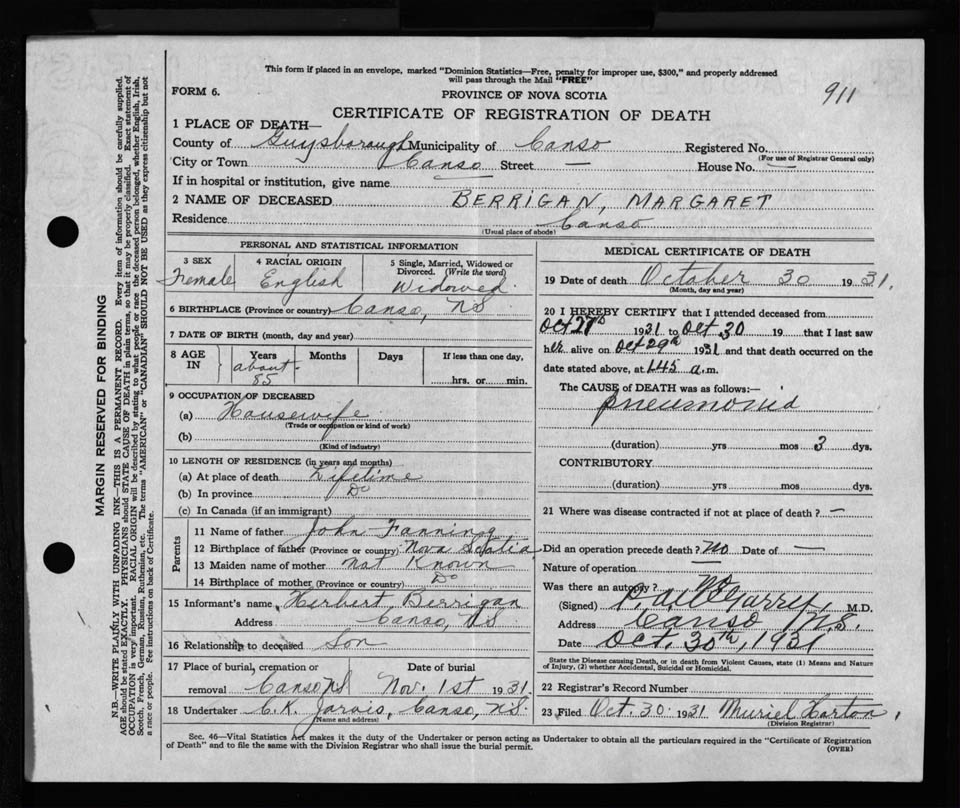 This form if placed in an envelope, marked "Dominion Statistics—Free, penalty for improper use, $300," and properly addressed
will pass through the Mail "FREE"
FORM 6.
PROVINCE OF NOVA SCOTIA
911
CERTIFICATE OF REGISTRATION OF DEATH
1 PLACE OF DEATH—
County of Guysborough Municipality of Canso Registered No.
(For use of Registrar General only)
City or Town Canso Street — House No. —
If in hospital or institution, give name —
2 NAME OF DECEASED BERRIGAN, MARGARET
Residence Canso
(Usual place of abode)
PERSONAL AND STATISTICAL INFORMATION
3 SEX
Female
4 RACIAL ORIGIN
English
5 Single, Married, Widowed or
Divorced. (Write the word)
Widowed
6 BIRTHPLACE (Province or country) Canso, NS
7 DATE OF BIRTH (month, day and year)
8 AGE IN
Years
about 85
Months
Days
If less than one day,
hrs. or min.
9 OCCUPATION OF DECEASED
(a) Housewife
(Trade or occupation or kind of work)
(b)
(Kind of industry)
10 LENGTH OF RESIDENCE (in years and months)
(a) At place of death Lifetime
(b) In province Do
(c) In Canada (if an immigrant)
Parents
11 Name of father John Fanning
12 Birthplace of father (Province or country) Nova Scotia
13 Maiden name of mother Not Known
14 Birthplace of mother (Province or country) Do
15 Informant's name Herbert Berrigan
Address Canso, NS
16 Relationship to deceased Son
17 Place of burial, cremation or
removal Canso NS
Date of burial
Nov. 1st 1931.
18 Undertaker C.K. Jarvis, Canso, NS.
(Name and address)
MEDICAL CERTIFICATE OF DEATH
19 Date of death October 30 1931.
(Month, day and year)
20 I HEREBY CERTIFY that I attended deceased from
Oct 27th 1931 to Oct 30 19 that I last saw
her alive on Oct 29th 1931 and that death occurred on the
date stated above, at 1.45 a.m.
The CAUSE of DEATH was as follows:—
Pneumonia
(duration) yrs mos 3 dys.
CONTRIBUTORY
(duration) yrs mos dys.
21 Where was disease contracted if not at place of death? —
Did an operation precede death? No Date of —
Nature of operation —
Was there an autopsy? No
(Signed) M.D.
Address Canso N.S.
Date Oct. 30th, 1931
State the Disease causing Death, or in death from Violent Causes, state (1) Means and Nature
of Injury, (2) whether Accidental, Suicidal or Homicidal.
22 Registrar's Record Number
23 Filed Oct. 30 1931 Muriel Horton,
(Division Registrar)
Sec. 46—Vital Statistics Act makes it the duty of the Undertaker or person acting as Undertaker to obtain all the particulars required in the "Certificate of Registration
of Death" and to file the same with the Division Registrar who shall issue the burial permit.
(OVER)
MARGIN RESERVED FOR BINDING
N.B.—WRITE PLAINLY WITH UNFADING INK—THIS IS A PERMANENT RECORD. Every item of information should be carefully supplied.
AGE should be stated EXACTLY. PHYSICIANS should STATE CAUSE OF DEATH in plain terms, so that it may be properly classified. Exact statement of
OCCUPATION is very important. RACIAL ORIGIN will be described by stating to what people or race the deceased person belonged, whether English, Irish,
Scotch, French, German, Russian, Ruthenian, etc. The terms "AMERICAN" or "CANADIAN" SHOULD NOT BE USED as they express citizenship but not
a race or people. Fee instructions on back of Certificate.